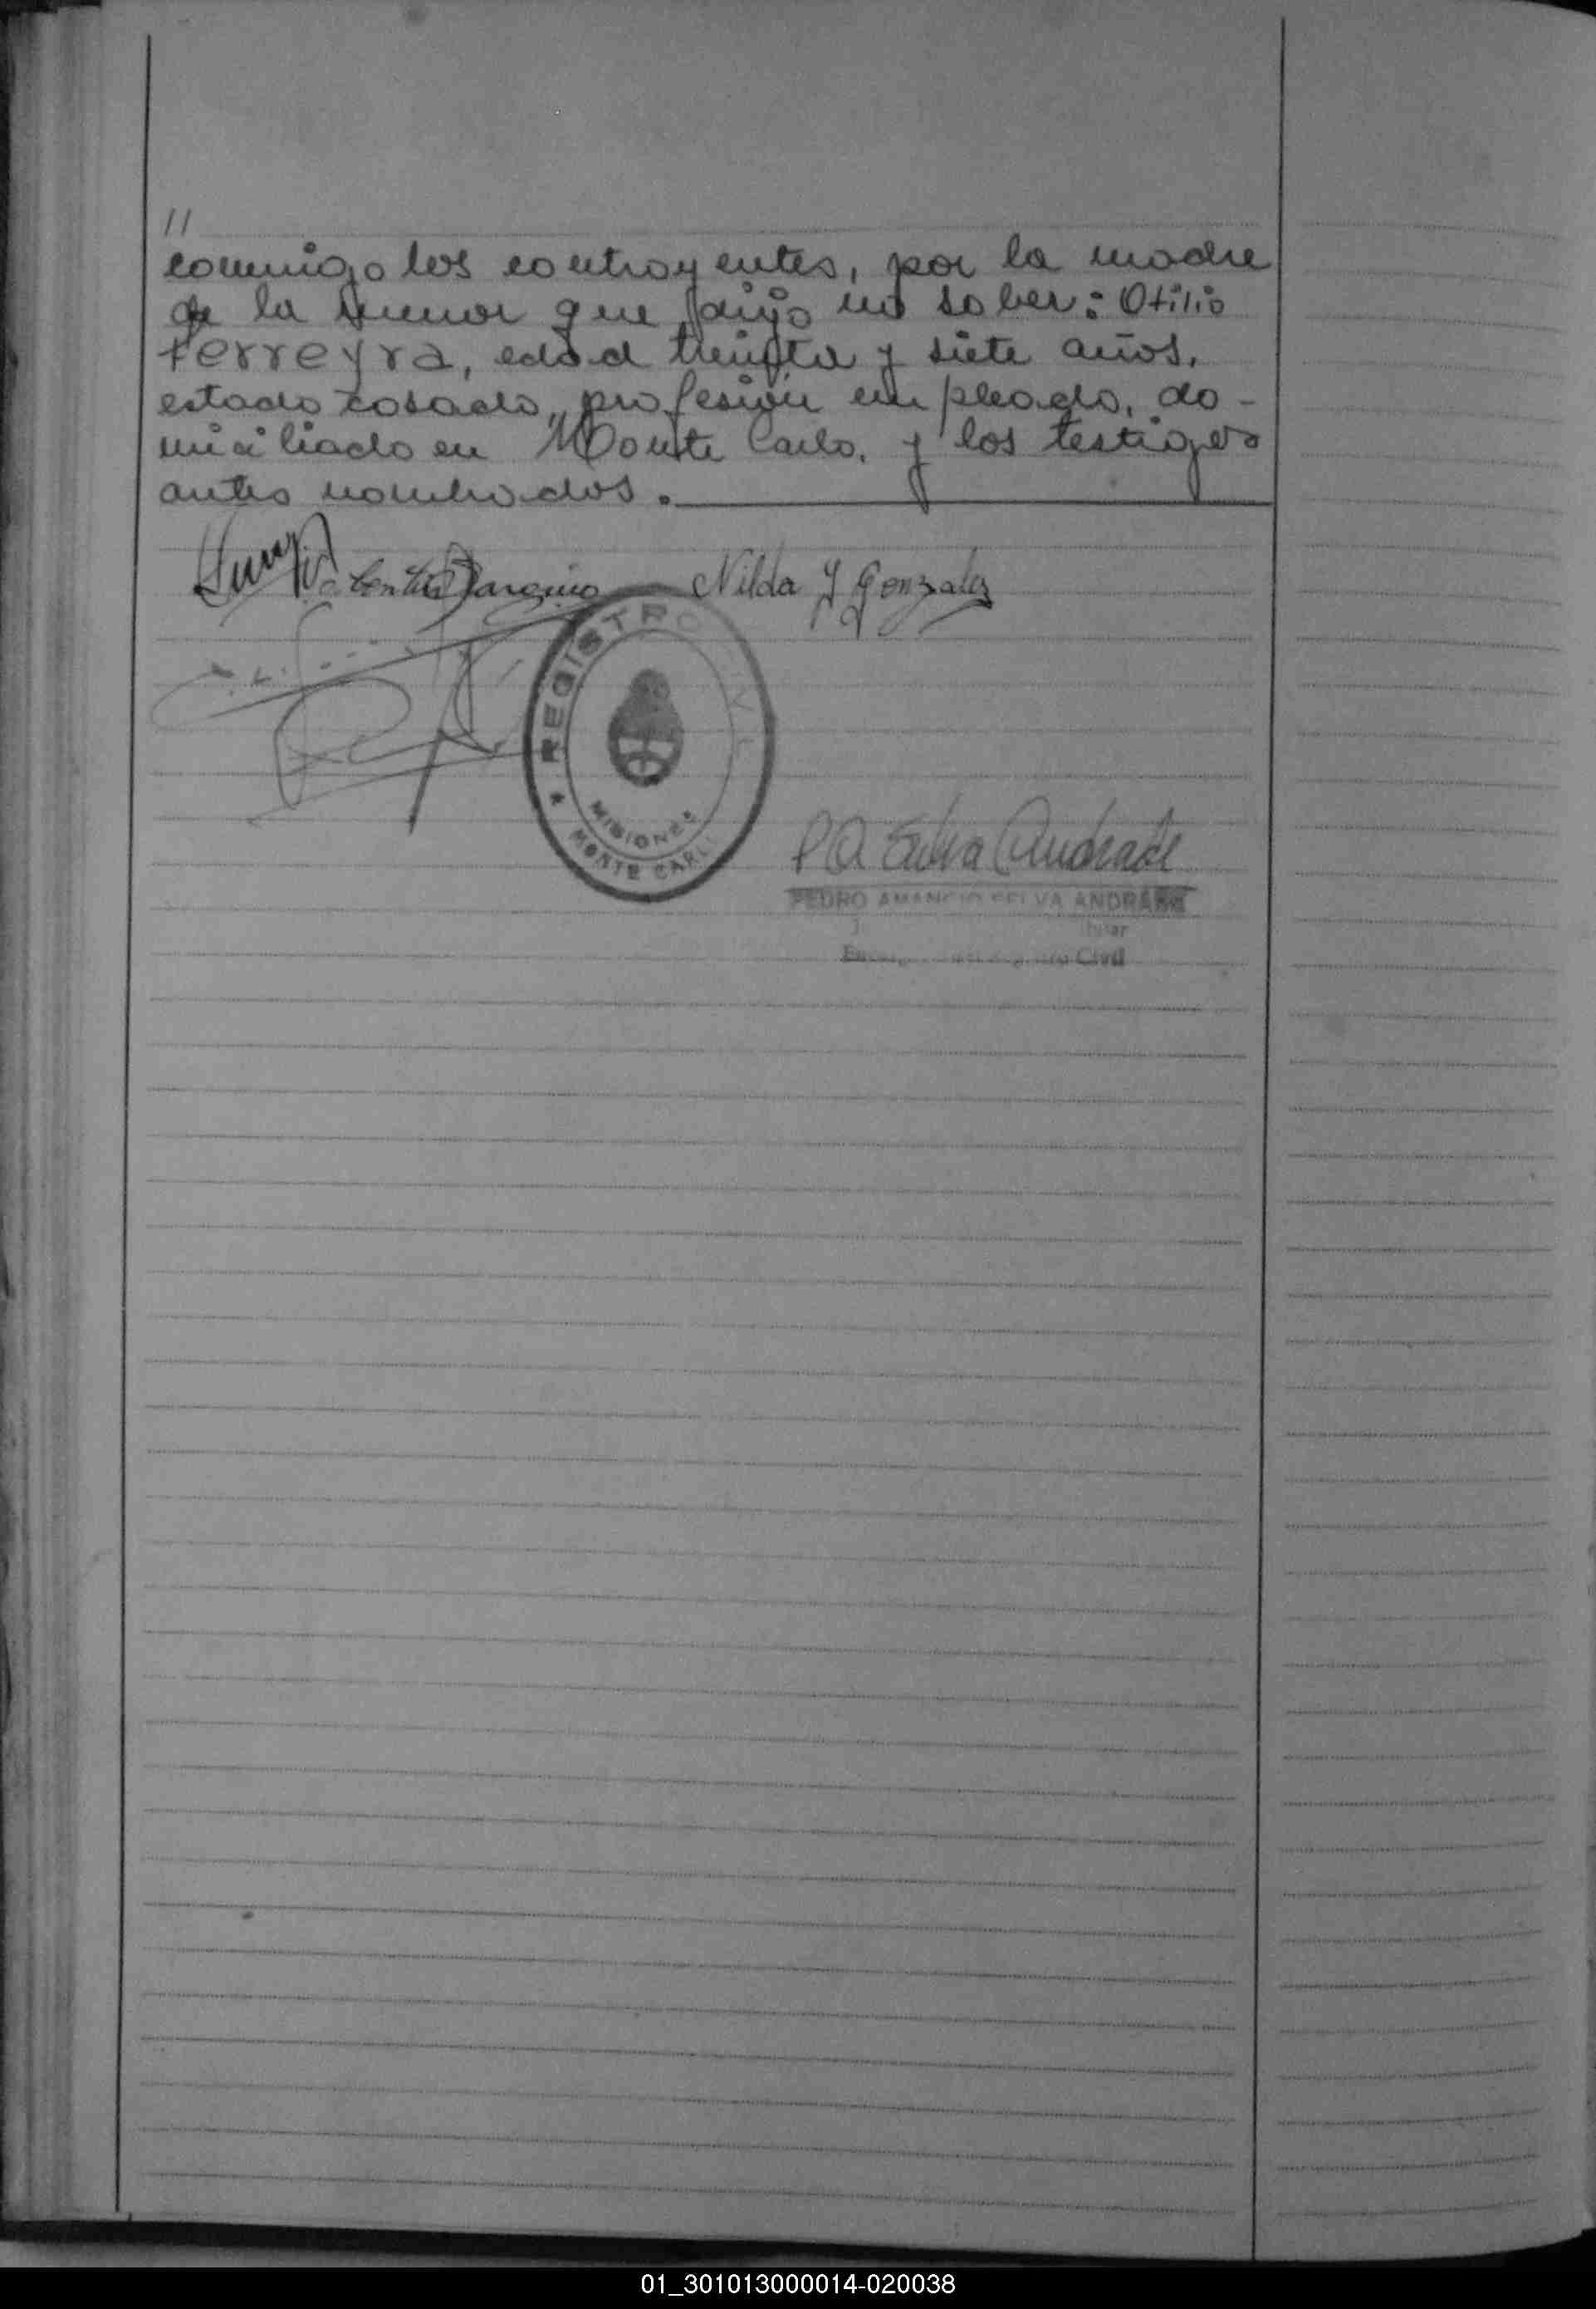 //
conmigo los contrayentes, por la madre
de la menor que dijo no saber: Otilio
Ferreyra, edad treinta y siete años,
estado casado, profesión empleado, do-
miciliado en Monte Carlo, y los testigos
antes nombrados.
Nilda Y Gonzalez
REGISTRO CIVIL
MISIONES
MONTE CARLO
P A Selva Andrade
PEDRO AMANCIO SELVA ANDRADE
Civil
01_301013000014-020038